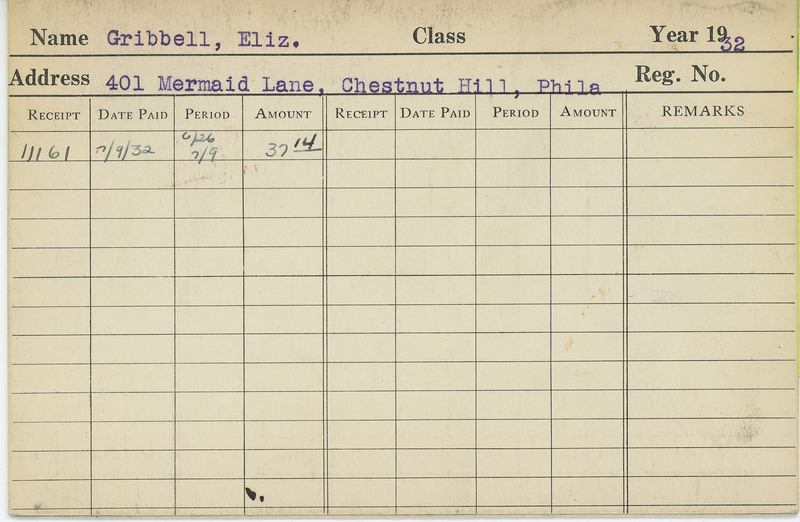 Name Gribbell, Eliz. Class Year 1932
Address 401 Mermaid Lane, Chestnut Hill, Phila Reg. No.
RECEIPT DATE PAID PERIOD AMOUNT RECEIPT DATE PAID PERIOD AMOUNT REMARKS
11161 7/9/32 6/26 7/9 37 14